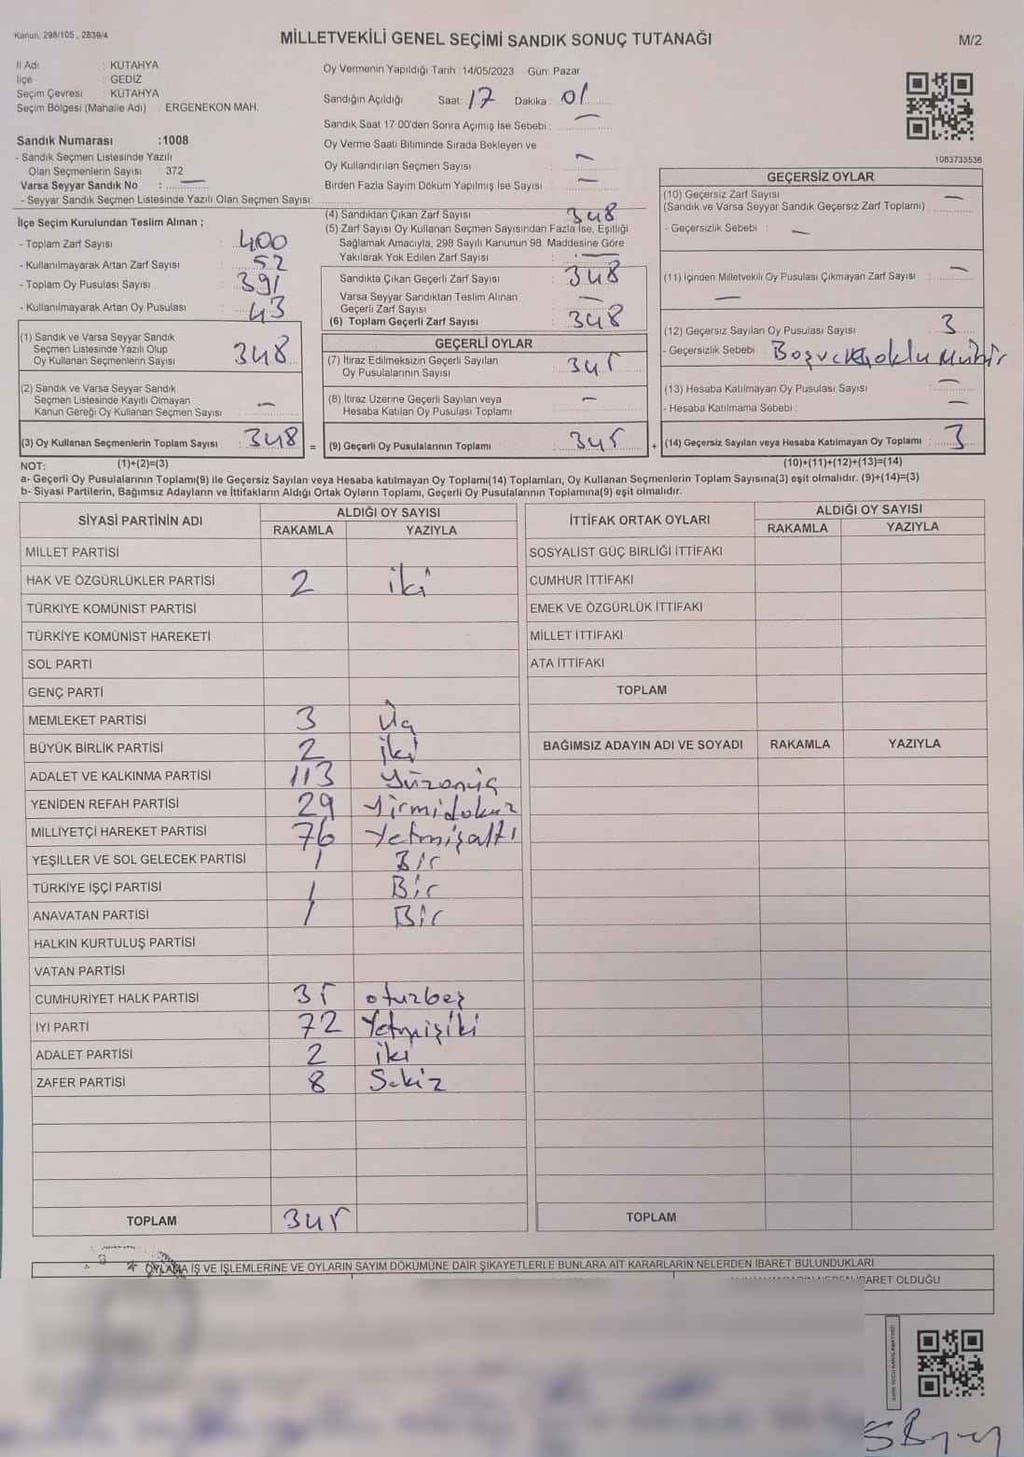 Kanun, 298/105, 2839/4
MİLLETVEKİLİ GENEL SEÇİMİ SANDIK SONUÇ TUTANAĞI
M/2
İl Adı : KÜTAHYA
İlçe : GEDİZ
Seçim Çevresi : KÜTAHYA
Seçim Bölgesi (Mahalle Adı) : ERGENEKON MAH.
Sandık Numarası :1008
- Sandık Seçmen Listesinde Yazılı
Olan Seçmenlerin Sayısı : 372
Varsa Seyyar Sandık No : —
- Seyyar Sandık Seçmen Listesinde Yazılı Olan Seçmen Sayısı:
Oy Vermenin Yapıldığı Tarih: 14/05/2023 Gün: Pazar
Sandığın Açıldığı Saat: 17 Dakika: 01
Sandık Saat 17:00'den Sonra Açılmış İse Sebebi: —
Oy Verme Saati Bitiminde Sırada Bekleyen ve
Oy Kullandırılan Seçmen Sayısı : —
Birden Fazla Sayım Döküm Yapılmış İse Sayısı : —
1083733536
İlçe Seçim Kurulundan Teslim Alınan ;
- Toplam Zarf Sayısı : 400
- Kullanılmayarak Artan Zarf Sayısı : 52
- Toplam Oy Pusulası Sayısı : 391
- Kullanılmayarak Artan Oy Pusulası : 43
(1) Sandık ve Varsa Seyyar Sandık
Seçmen Listesinde Yazılı Olup
Oy Kullanan Seçmenlerin Sayısı : 348
(2) Sandık ve Varsa Seyyar Sandık
Seçmen Listesinde Kayıtlı Olmayan
Kanun Gereği Oy Kullanan Seçmen Sayısı : —
(3) Oy Kullanan Seçmenlerin Toplam Sayısı : 348 =
NOT: (1)+(2)=(3)
(4) Sandıktan Çıkan Zarf Sayısı : 348
(5) Zarf Sayısı Oy Kullanan Seçmen Sayısından Fazla İse, Eşitliği
Sağlamak Amacıyla, 298 Sayılı Kanunun 98. Maddesine Göre
Yakılarak Yok Edilen Zarf Sayısı : —
Sandıkta Çıkan Geçerli Zarf Sayısı : 348
Varsa Seyyar Sandıktan Teslim Alınan
Geçerli Zarf Sayısı : —
(6) Toplam Geçerli Zarf Sayısı : 348
GEÇERLİ OYLAR
(7) İtiraz Edilmeksizin Geçerli Sayılan
Oy Pusulalarının Sayısı : 345
(8) İtiraz Üzerine Geçerli Sayılan veya
Hesaba Katılan Oy Pusulası Toplamı : —
(9) Geçerli Oy Pusulalarının Toplamı : 345 +
GEÇERSİZ OYLAR
(10) Geçersiz Zarf Sayısı : —
(Sandık ve Varsa Seyyar Sandık Geçersiz Zarf Toplamı)
- Geçersizlik Sebebi : —
(11) İçinden Milletvekili Oy Pusulası Çıkmayan Zarf Sayısı : —
—
(12) Geçersiz Sayılan Oy Pusulası Sayısı : 3
- Geçersizlik Sebebi :
(13) Hesaba Katılmayan Oy Pusulası Sayısı : —
- Hesaba Katılmama Sebebi : —
(14) Geçersiz Sayılan veya Hesaba Katılmayan Oy Toplamı : 3
(10)+(11)+(12)+(13)=(14)
a- Geçerli Oy Pusulalarının Toplamı(9) ile Geçersiz Sayılan veya Hesaba katılmayan Oy Toplamı(14) Toplamları, Oy Kullanan Seçmenlerin Toplam Sayısına(3) eşit olmalıdır. (9)+(14)=(3)
b- Siyasi Partilerin, Bağımsız Adayların ve İttifakların Aldığı Ortak Oyların Toplamı, Geçerli Oy Pusulalarının Toplamına(9) eşit olmalıdır.
SİYASİ PARTİNİN ADI
ALDIĞI OY SAYISI
RAKAMLA YAZIYLA
MİLLET PARTİSİ
HAK VE ÖZGÜRLÜKLER PARTİSİ 2 iki
TÜRKİYE KOMÜNİST PARTİSİ
TÜRKİYE KOMÜNİST HAREKETİ
SOL PARTİ
GENÇ PARTİ
MEMLEKET PARTİSİ 3 Üç
BÜYÜK BİRLİK PARTİSİ 2 iki
ADALET VE KALKINMA PARTİSİ 113 Yüzonüç
YENİDEN REFAH PARTİSİ 29 Yirmidokuz
MİLLİYETÇİ HAREKET PARTİSİ 76 Yetmişaltı
YEŞİLLER VE SOL GELECEK PARTİSİ 1 Bir
TÜRKİYE İŞÇİ PARTİSİ 1 Bir
ANAVATAN PARTİSİ 1 Bir
HALKIN KURTULUŞ PARTİSİ
VATAN PARTİSİ
CUMHURİYET HALK PARTİSİ 35 otuzbeş
İYİ PARTİ 72 Yetmişiki
ADALET PARTİSİ 2 iki
ZAFER PARTİSİ 8 Sekiz
TOPLAM 345
İTTİFAK ORTAK OYLARI
ALDIĞI OY SAYISI
RAKAMLA YAZIYLA
SOSYALİST GÜÇ BİRLİĞİ İTTİFAKI
CUMHUR İTTİFAKI
EMEK VE ÖZGÜRLÜK İTTİFAKI
MİLLET İTTİFAKI
ATA İTTİFAKI
TOPLAM
BAĞIMSIZ ADAYIN ADI VE SOYADI RAKAMLA YAZIYLA
TOPLAM
OYLAMA İŞ VE İŞLEMLERİNE VE OYLARIN SAYIM DÖKÜMÜNE DAİR ŞİKAYETLERLE BUNLARA AİT KARARLARIN NELERDEN İBARET BULUNDUKLARI
İBARET OLDUĞU